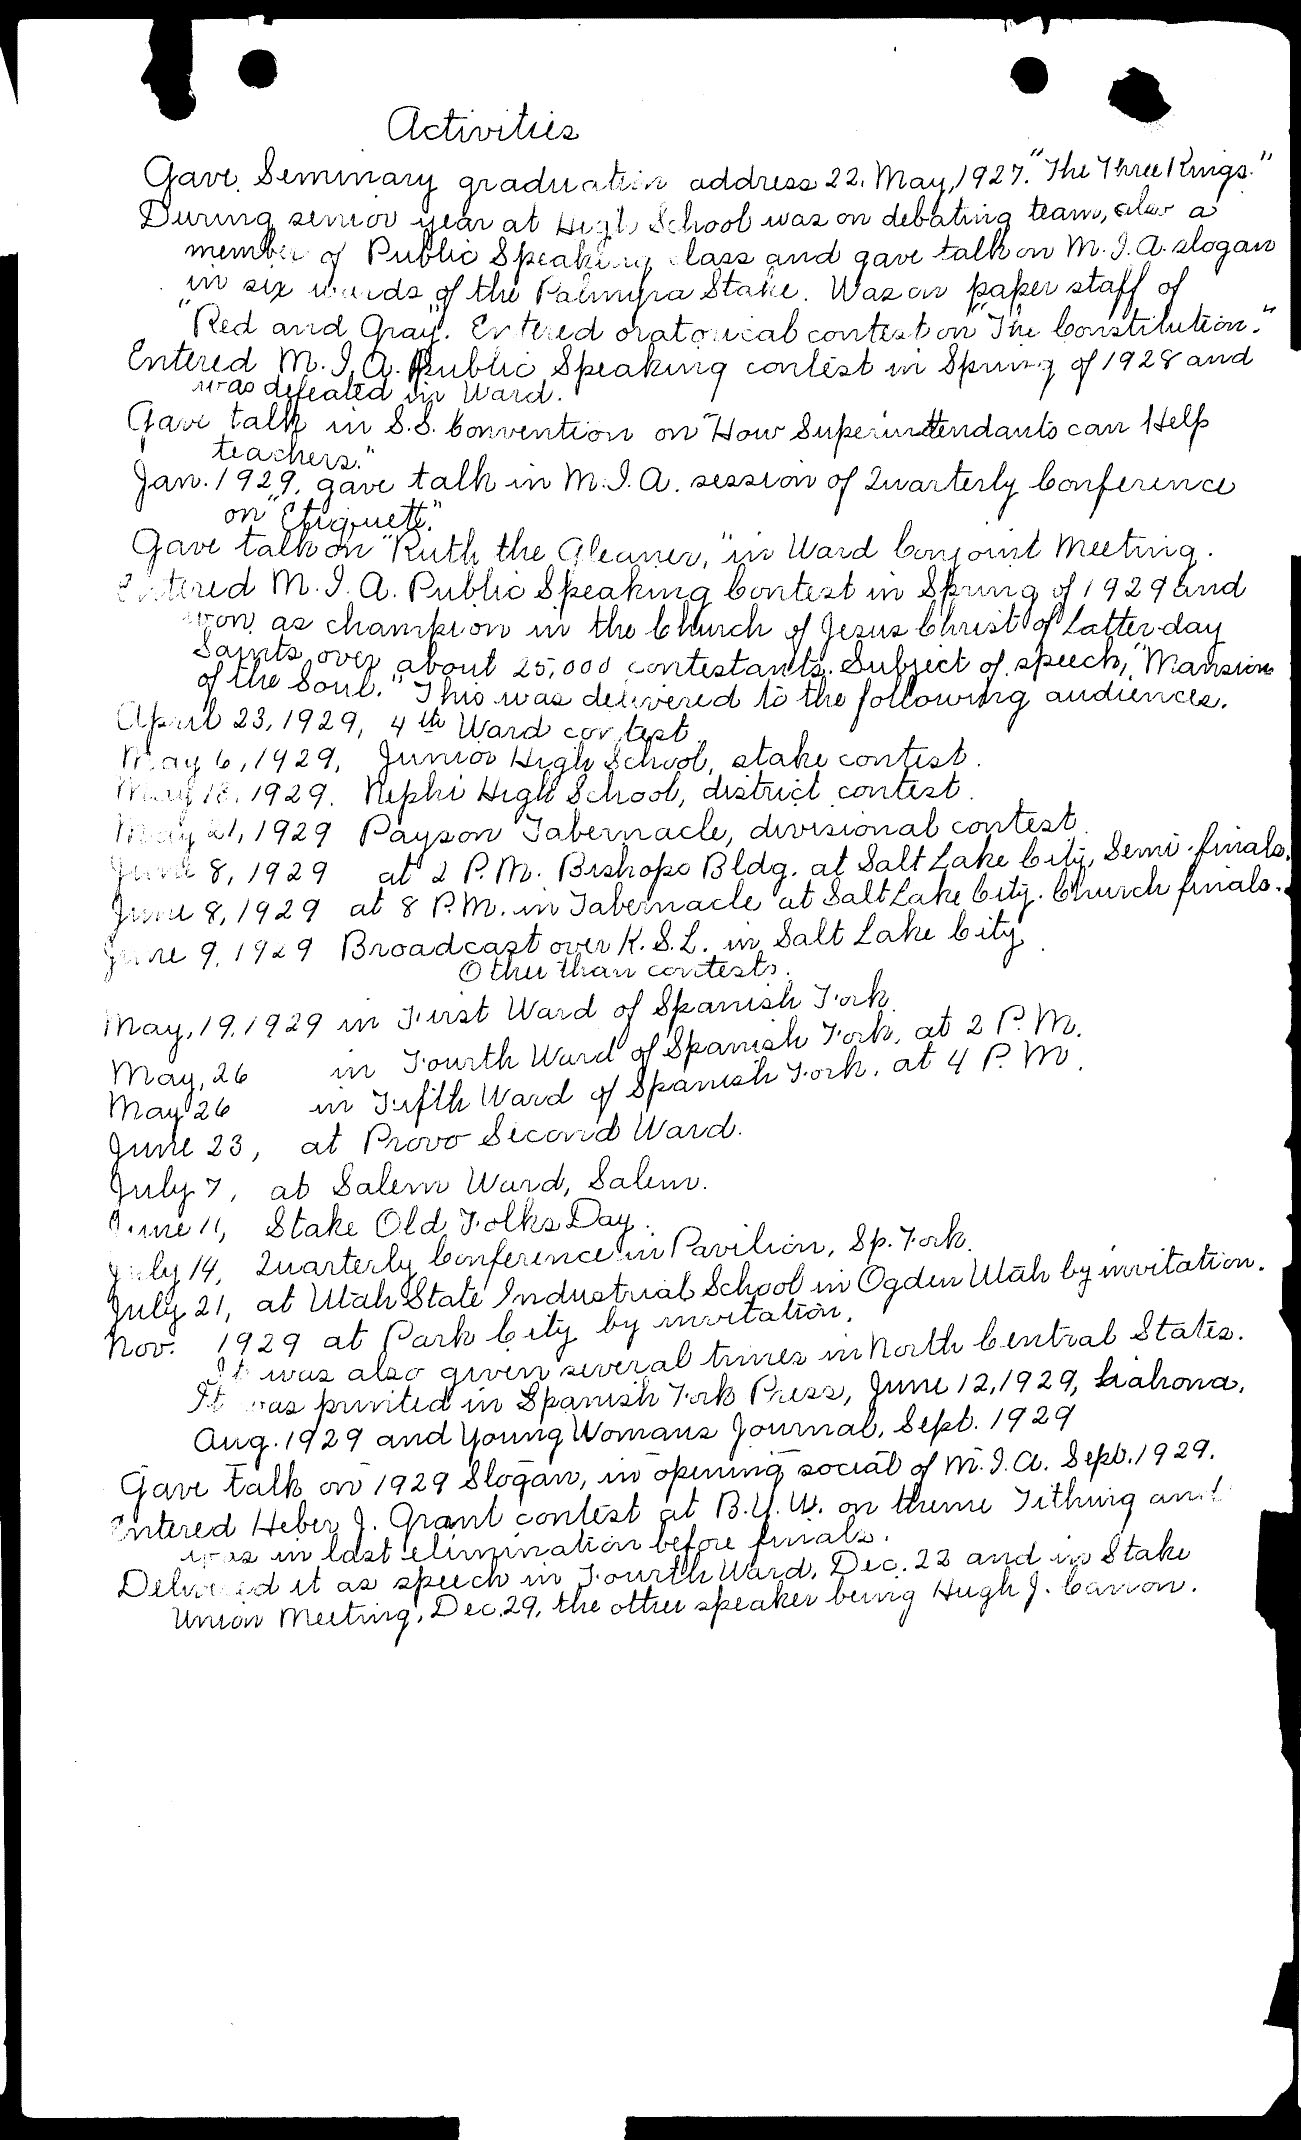 Activities
Gave Seminary graduation address 22. May, 1927. "The Three Kings."
During senior year at High School was on debating team, also a
member of Public Speaking class and gave talk on M. I. A. slogan
in six wards of the Palmyra Stake. Was on paper staff of
"Red and Gray". Entered oratorical contest on "The Constitution."
Entered M. I. A. Public Speaking contest in Spring of 1928 and
was defeated in Ward.
Gave talk in S.S. Convention on "How Superinttendants can Help
teachers."
Jan. 1929, gave talk in M. I. A. session of Quarterly Conference
on "Etiquette."
Gave talk on "Ruth the Gleaner," in Ward Conjoint Meeting.
Entered M. I. A. Public Speaking Contest in Spring of 1929 and
won as champion in the Church of Jesus Christ of Latter-day
Saints over about 25,000 contestants. Subject of speech, "Mansions
of the Soul." This was delivered to the following audiences.
April 23, 1929, 4th Ward contest
May 6, 1929, Junior High School, stake contest.
May 18, 1929. Nephi High School, district contest.
May 21, 1929 Payson Tabernacle, divisional contest.
June 8, 1929 at 2 P. M. Bishops Bldg. at Salt Lake City, Semi-finals.
June 8, 1929 at 8 P. M. in Tabernacle at Salt Lake City. Church finals.
June 9, 1929 Broadcast over K. S. L. in Salt Lake City.
Other than contests.
May, 19, 1929 in First Ward of Spanish Fork.
May, 26 in Fourth Ward of Spanish Fork, at 2 P. M.
May 26 in Fifth Ward of Spanish Fork. at 4 P. M.
June 23, at Provo Second Ward.
July 7, at Salem Ward, Salem.
June 11, Stake Old Folks Day.
July 14, Quarterly Conference in Pavilion, Sp. Fork.
July 21, at Utah State Industrial School in Ogden Utah by invitation.
Nov. 1929 at Park City by invitation.
It was also given several times in North Central States.
It was printed in Spanish Fork Press, June 12, 1929, Liahona,
Aug. 1929 and Young Womans Journal, Sept. 1929
Gave talk on 1929 Slogan, in opening social of M. I. A. Sept. 1929.
Entered Heber J. Grant contest at B. Y. U. on theme Tithing and
was in last elimination before finals.
Delivered it as speech in Fourth Ward, Dec. 22 and in Stake
Union Meeting, Dec. 29, the other speaker being Hugh J. Cannon.